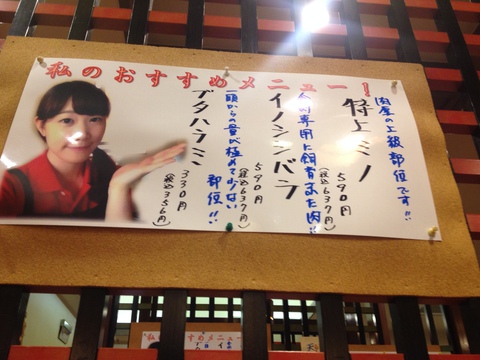 私のおすすめメニュー！
肉厚の上級部位です!!
特上ミノ
590円
(税込637円)
食用専用に飼育した肉!!
イノシシバラ
590円
(税込637円)
一頭からの量が極めて少ない
部位!!
ブタハラミ
330円
(税込356円)
すすめメニュー